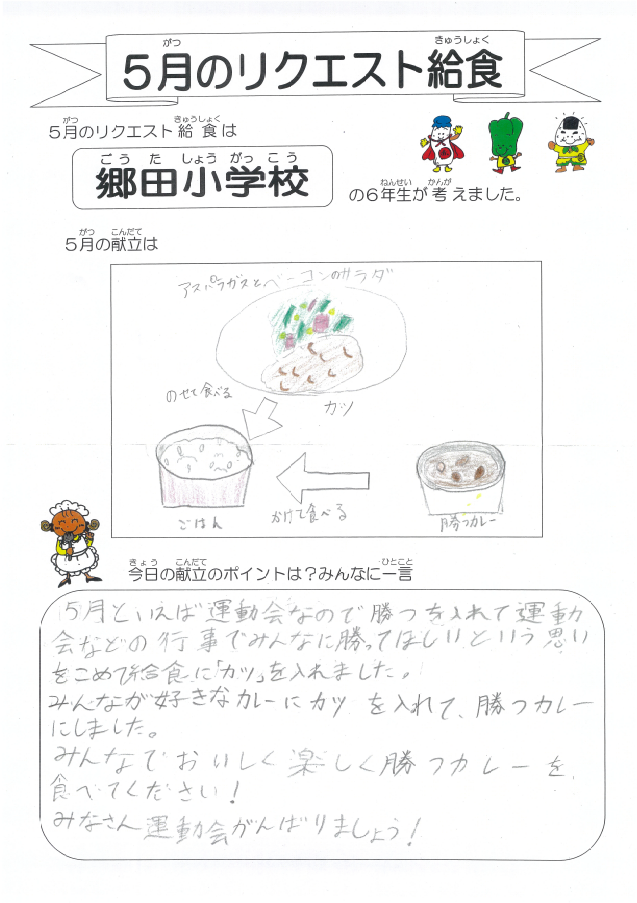 5月のリクエスト給食
がつ
きゅうしょく
がつ
きゅうしょく
5月のリクエスト給食は
ごうたしょうがっこう
郷田小学校
ねんせい
かんが
の6年生が考えました。
がつ
こんだて
5月の献立は
アスパラガスとベーコンのサラダ
のせて食べる
カツ
ごはん
かけて食べる
勝つカレー
きょう
こんだて
ひとこと
今日の献立のポイントは?みんなに一言
5月といえば運動会なので勝つを入れて運動
会などの行事でみんなに勝ってほしいという思い
をこめて給食に「カツ」を入れました。
みんなが好きなカレーにカツを入れて、勝つカレー
にしました。
みんなでおいしく楽しく勝つカレーを
食べてください!
みなさん運動会がんばりましょう!